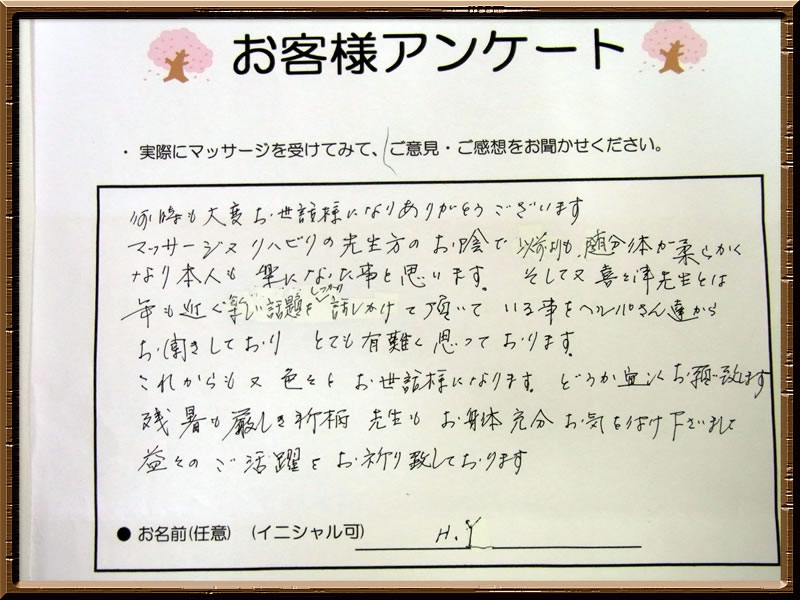 お客様アンケート
・実際にマッサージを受けてみて、ご意見・ご感想をお聞かせください。
何時も大変お世話様になりありがとうございます
マッサージ又リハビリの先生方のお陰で以前よりも、随分体が柔らかく
なり本人も楽になった事と思います。そして又喜々津先生とは
年も近く楽しい話題を しっかり 話しかけて頂いている事をヘルパさん達から
お聞きしており とても有難く思っております。
これからも又色々とお世話様になります。どうか宜しくお願い致します
残暑も厳しき折柄 先生もお身体充分お気を付け下さいまして
益々のご活躍をお祈り致しております
●お名前(任意) (イニシャル可) H.Y